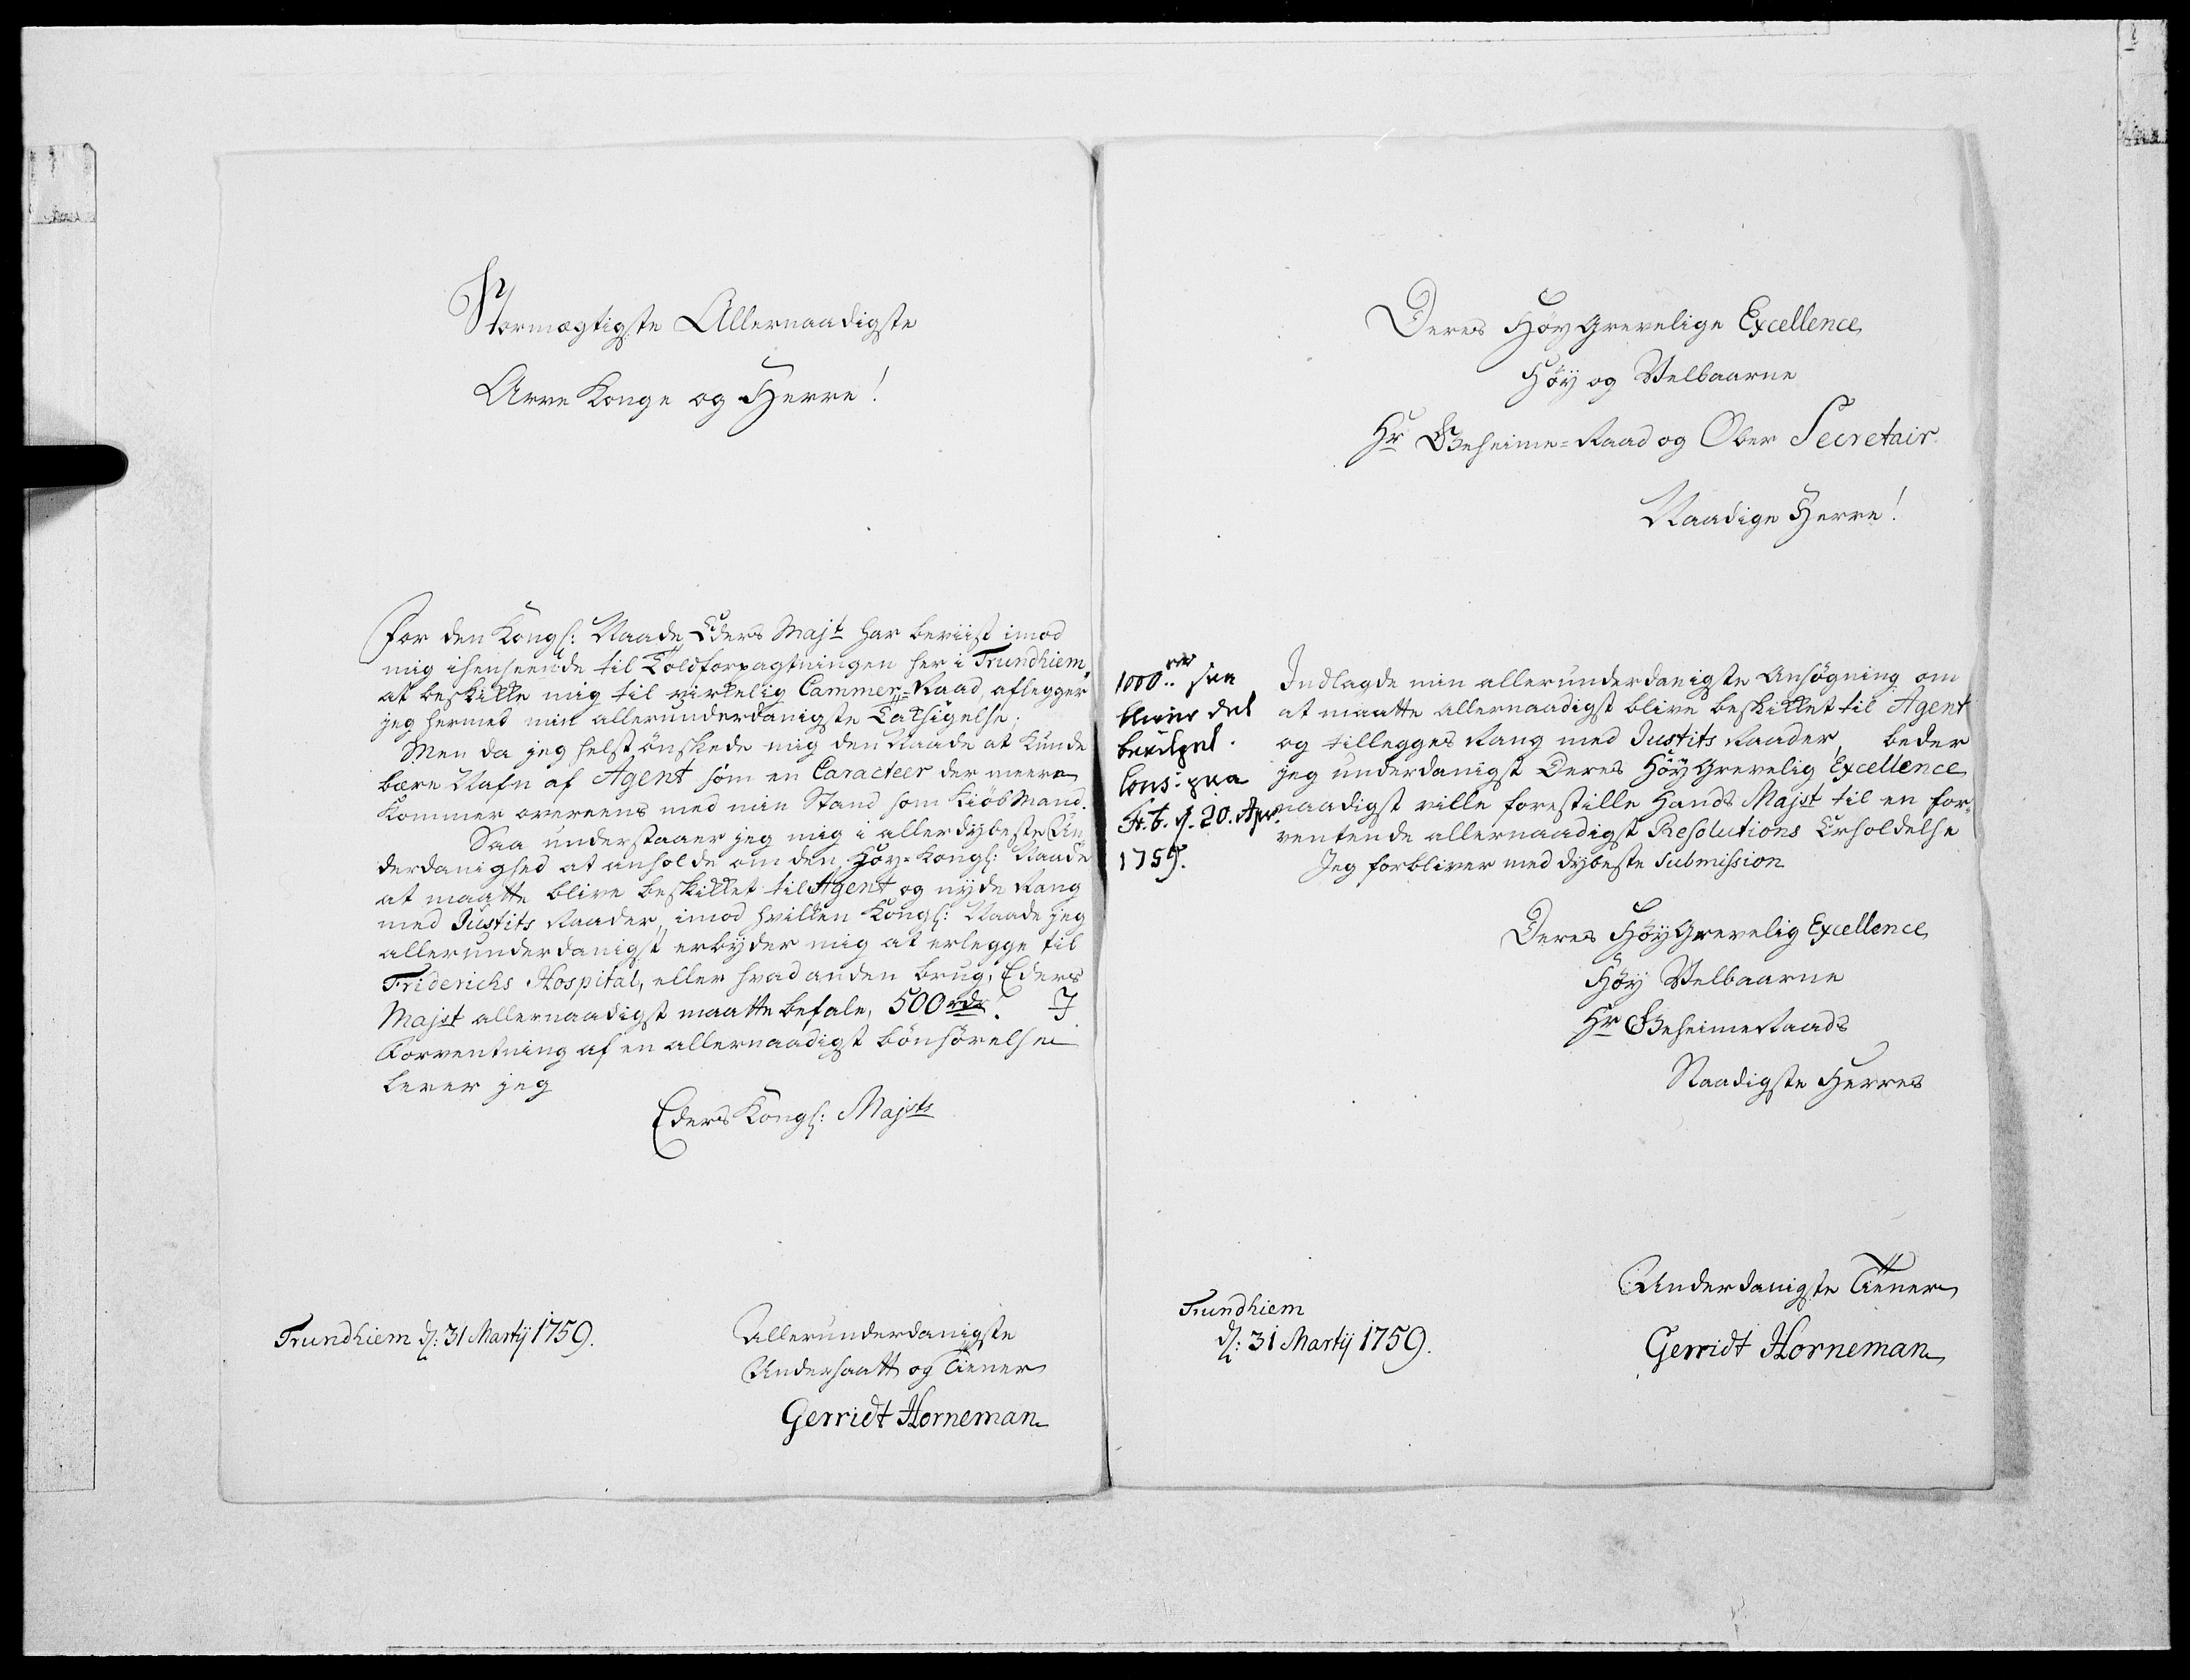 Stormægtigste Allernaadigste
Arve Konge og Herre!
For den Kongl: Naade Eders Majt har beviist imod
mig ihenseende til Toldforpagtningen her i Trundhiem,
at beskikke mig til virkelig Cammer=Raad, aflegger
jeg hermed min allerunderdanigste Taksigelse;
Men da jeg helst ønskede mig den Naade at kunde
bære Nafn af Agent som en Caracteer der meere
kommer overeens med min Stand som Kiøbmand.
Saa understaaer jeg mig i allerdybeste Un
derdanighed at anholde om den Høy=Kongl: Naade
at maatte blive beskikket til Agent og nyde Rang
med Justits Raader, imod hvilken Kongl: Naade jeg
allerunderdanigst erbyder mig at erlegge til
Friderichs Hospital, eller hvad anden brug, Eders
Majst allernaadigst maatte befale, 500 rdr. J
Forventning af en allernaadigst bønhørelse
lever jeg
Eders Kongl: Majsts
Trundhiem d: 31 Martij 1759.
Allerunderdanigste
Undersaatt og Tiener
Gerridt Horneman
Deres HøyGrevelige Excellence
Høy og Velbaarne
Hr Geheime=Raad og Ober Secretair
Naadige Herre!
1000 rdr saa
bliver det
bevilget.
Cons: paa
Fr. b. d. 20. Apr.
1759.
Indlagde min allerunderdanigste Ansøgning om
at maatte allernaadigst blive beskikket til Agent
og tillegges Rang med Justits Raader, beder
jeg underdanigst Deres HøyGrevelig Excellence
naadigst ville forestille Hands Majst til en for=
ventende allernaadigst Resolutions Erholdelse
Jeg forbliver med dybeste Submission
Deres HøyGrevelig Excellence
Høy Velbaarne
Hr GeheimeRaads
Naadigste Herres
Trundhiem
d: 31 Martij 1759.
Underdanigste Tiener
Gerridt Horneman